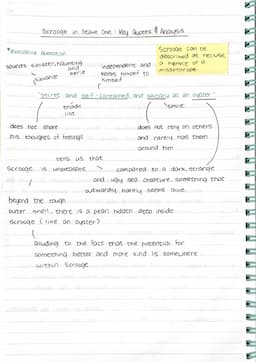 Scrooge in Stave One: Key Quotes & Analysis
* evaluative question
Scrooge can be
described as recluse,
a hermit or a
misanthrope.
sounds sinister, haunting
and
eerie
independent and
keeps himself to
himself
sibilance
"secret and self-contained, and solitary as an oyster"
triadic
list
simile
does not share
his thoughts or feelings
does not rely on others
and rarely has them
around him
tells us that
Scrooge is unreadable
compared to a dark, strange
and ugly sea creature, something that
outwardly, barely seems alive
beyond the rough
outer shell, there is a pearl hidden deep inside
Scrooge (like an oyster)
alluding to the fact that the potential for
something better and more kind is somewhere
within Scrooge